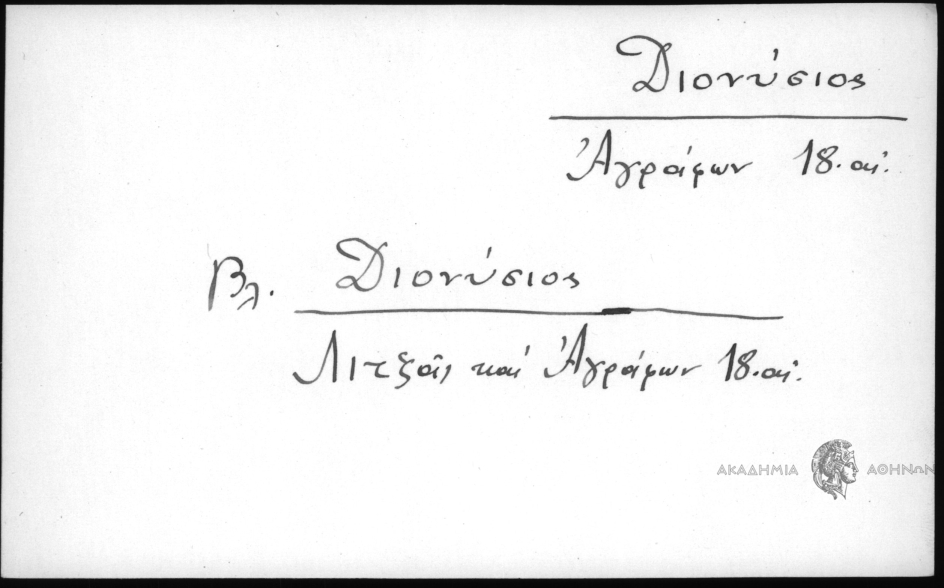 Διονύσιος
Ἀγράφων 18. αἰ.
Βλ. Διονύσιος
Λιτζᾶς καί Ἀγράφων 18. αἰ.
ΑΚΑΔΗΜΙΑ ΑΘΗΝΩΝ